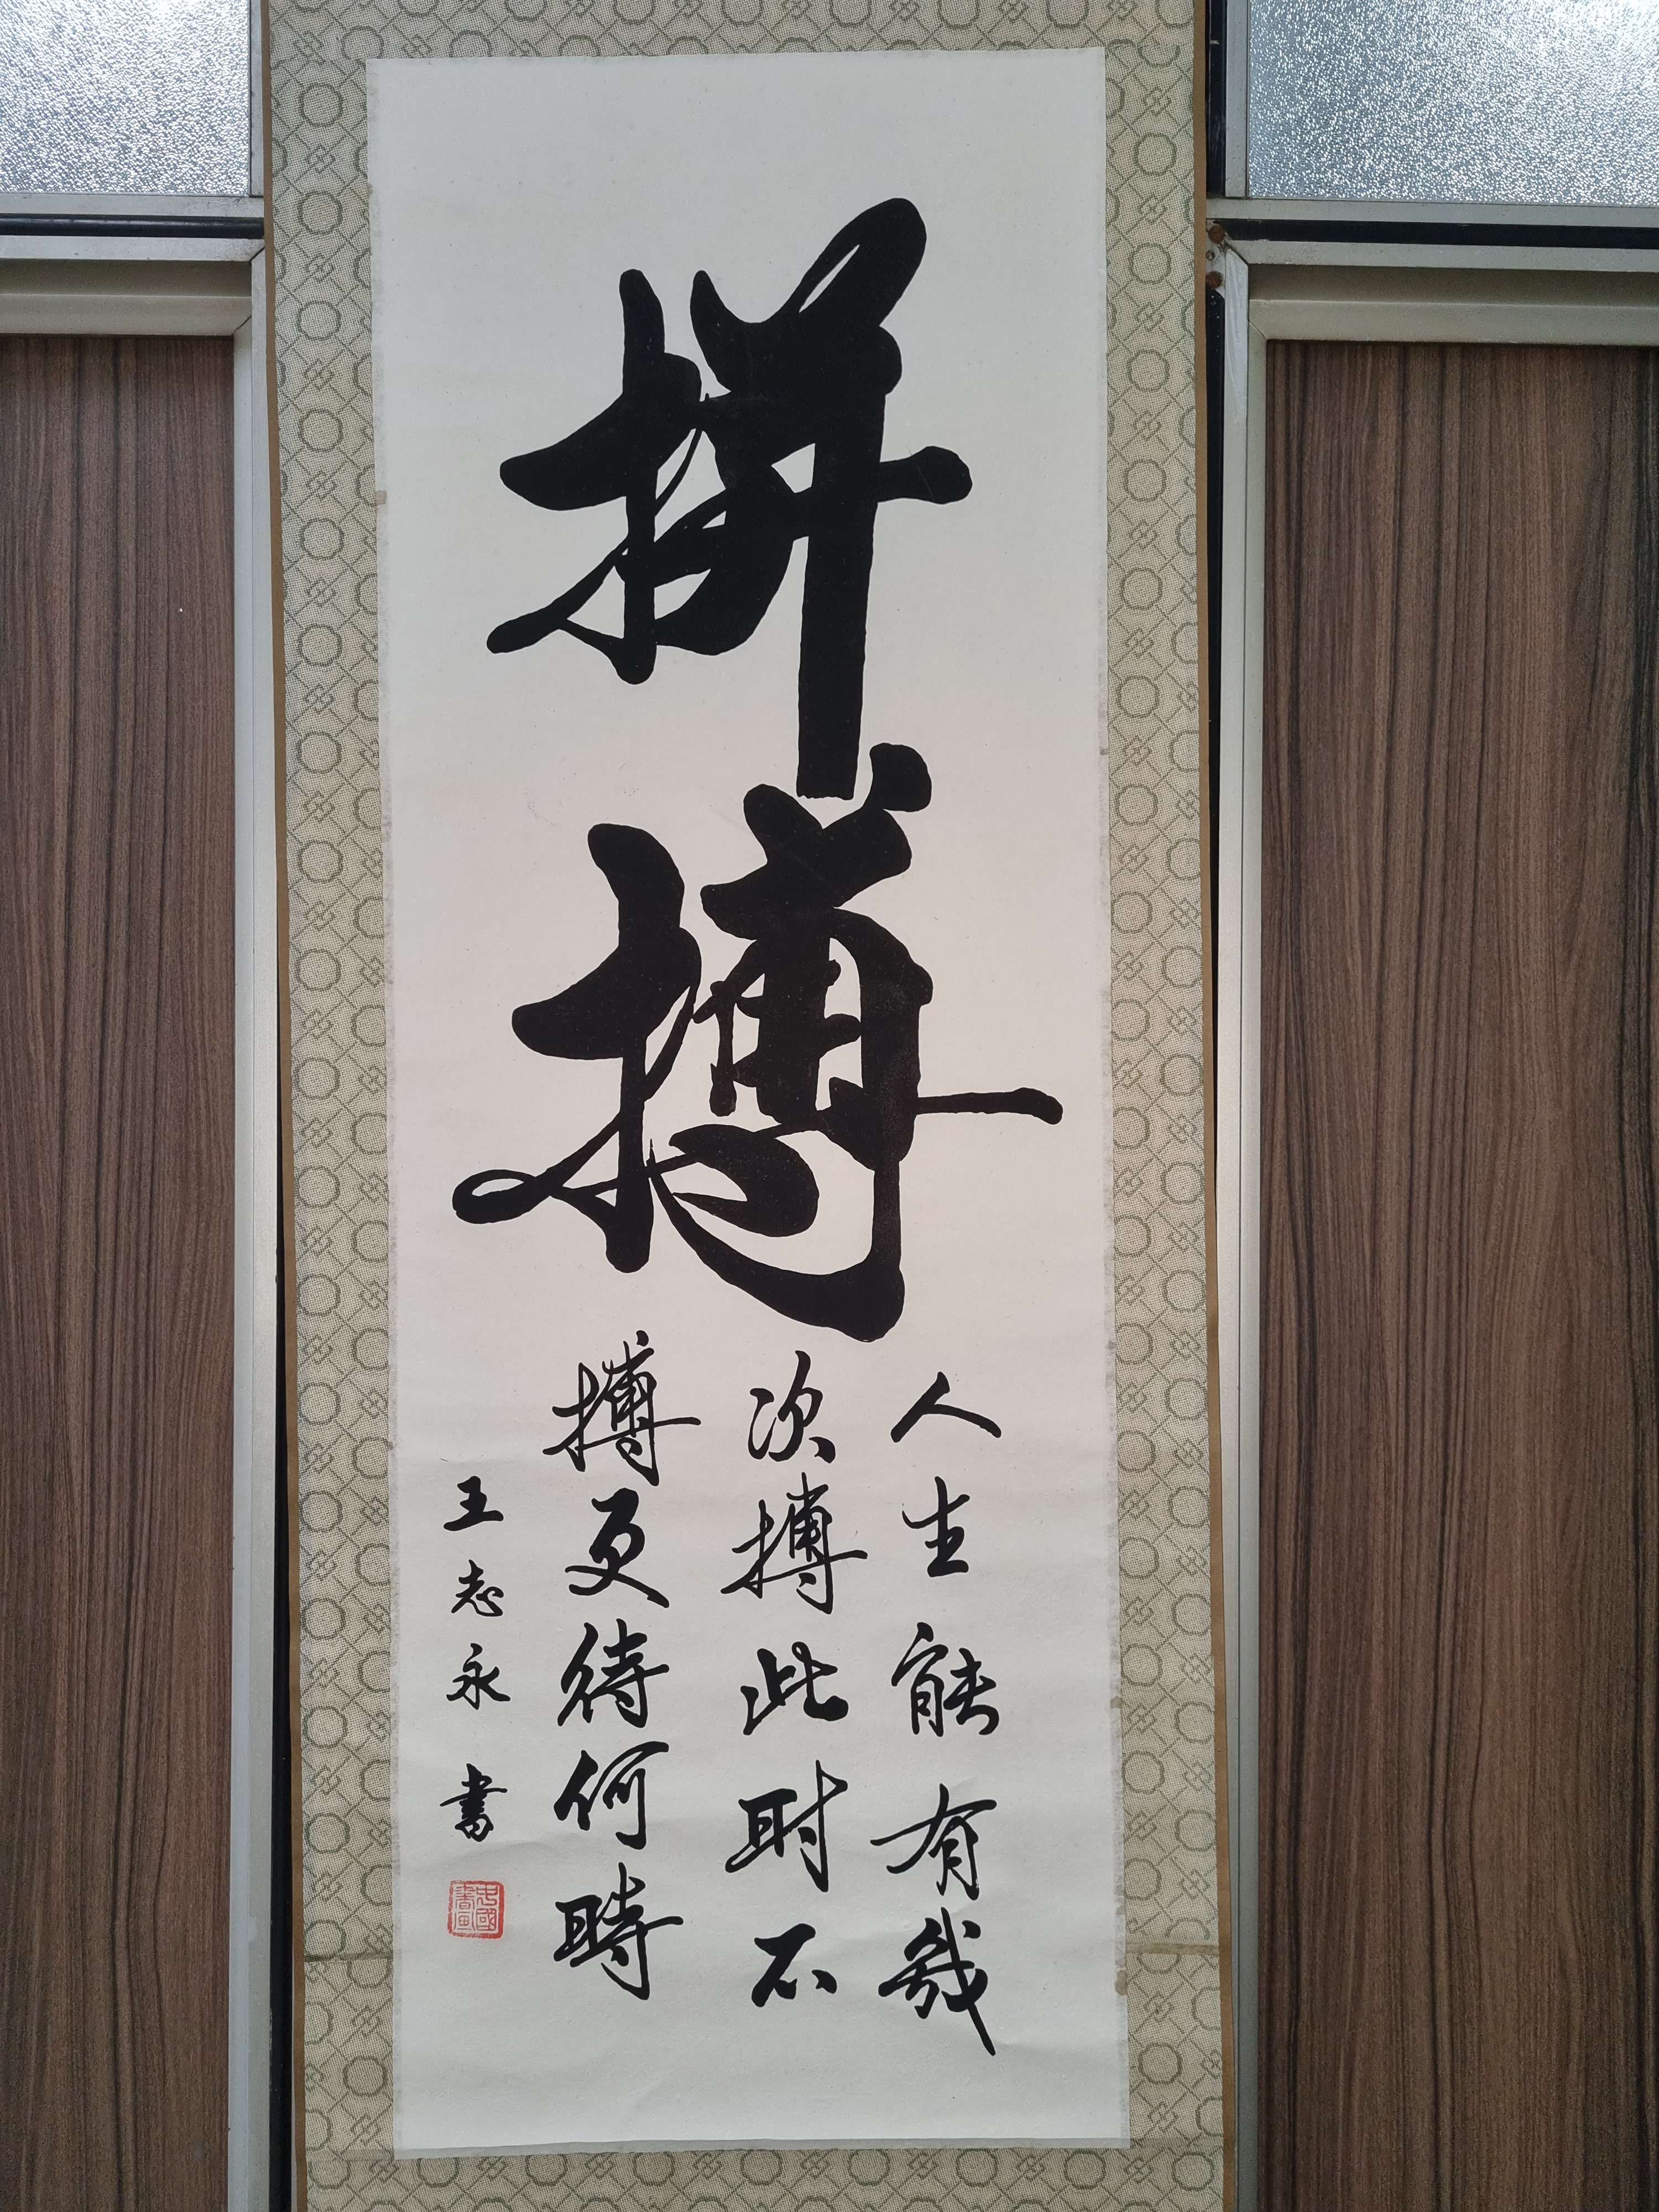 拼搏
人生能有幾
次搏此时不
搏更待何時
王志永書
中國書画